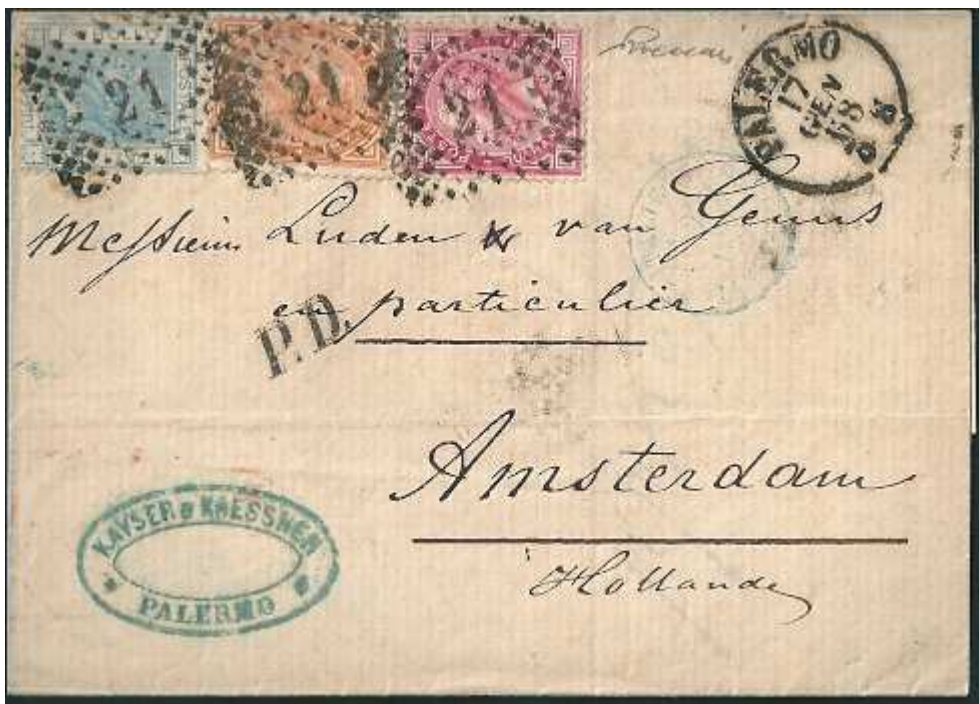 21
21
21
PALERMO
17
GEN
68
Messieurs Luden & van Geuns
en particulier
P.D.
Amsterdam
Hollande
KAYSER & KRESSNER
PALERMO